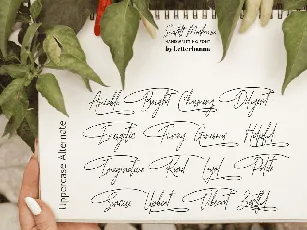 HANDWRITING FONT
by Letterhanna
Uppercase Alternate
Amiable Bright Charming Diligent
Energetic Funny Generous Helpful
Imaginative Kind Loyal Polite
Sincere Upbeat Vibrant